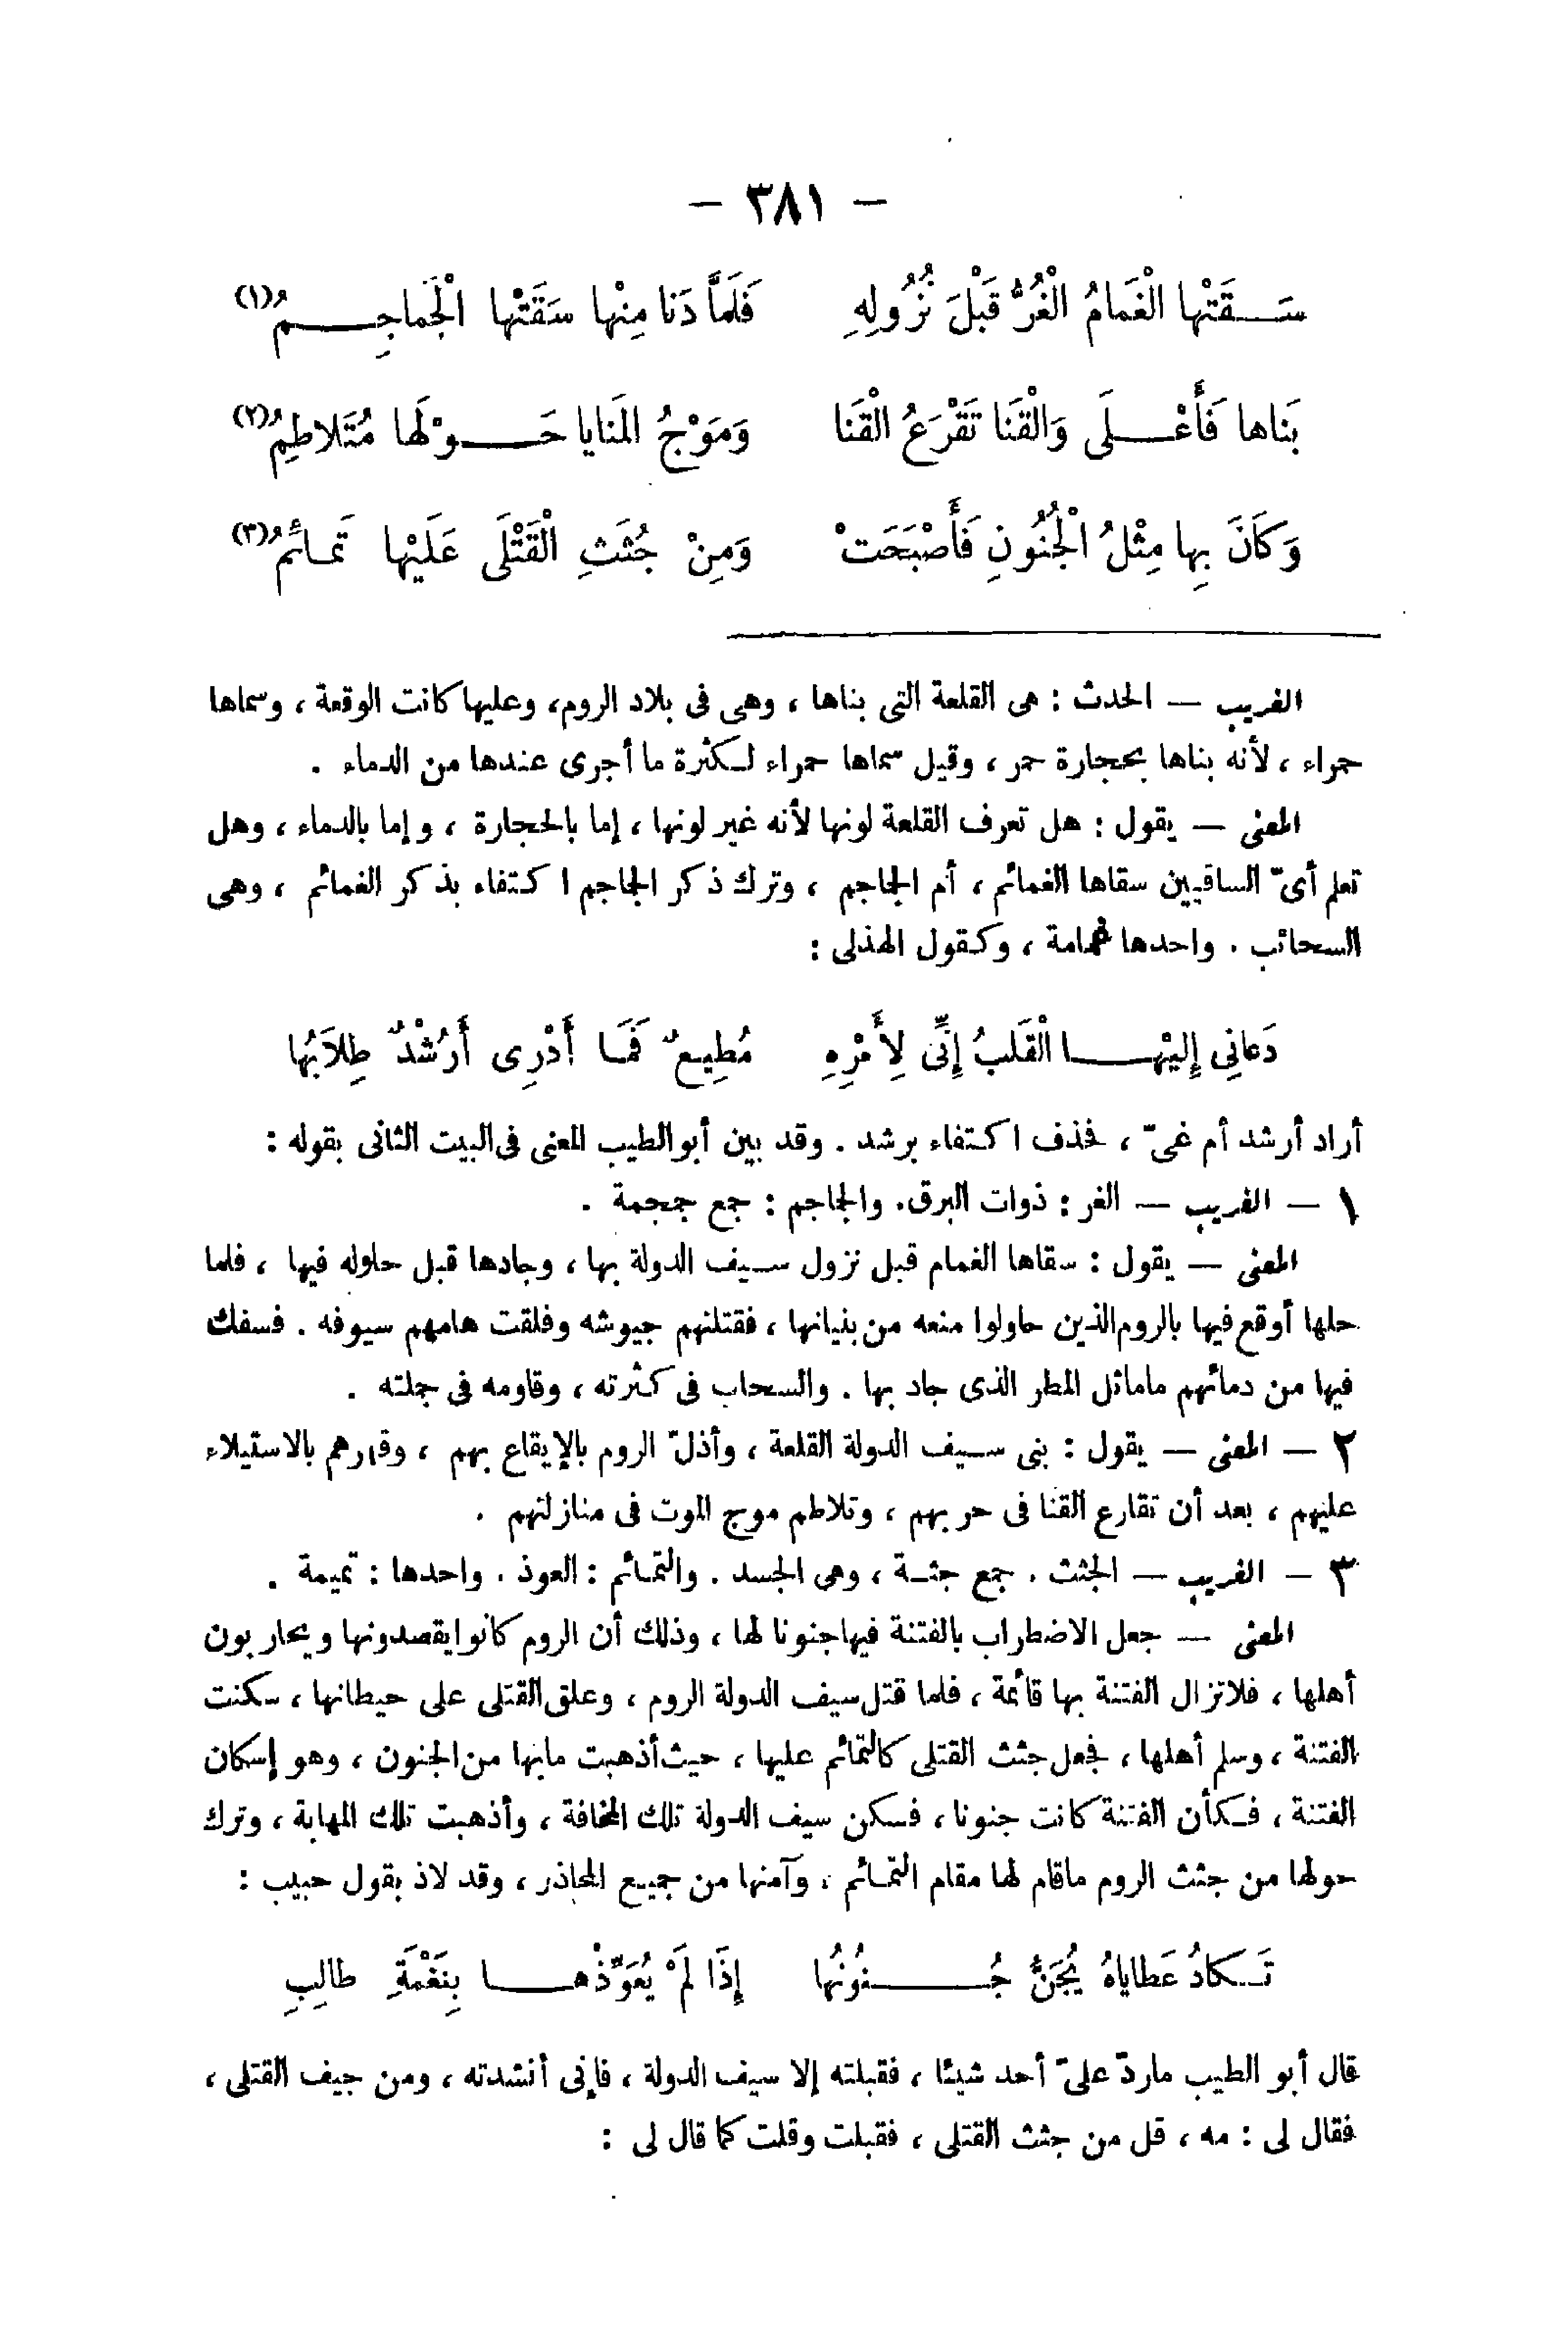 — ٣٨١ —
سَقَتْها الْغَمامُ الْغُرُّ قَبْلَ نُزُولِهِ فَلَمَّا دَنا مِنْها سَقَتْها الْجَماجِمُ (١)
بَناها فَأَعْلَى وَالْقَنَا تَقْرَعُ الْقَنَا وَمَوْجُ المَنايا حَوْلَها مُتَلاطِمُ (٢)
وَكَانَ بِها مِثْلُ الْجُنُونِ فَأَصْبَحَتْ وَمِنْ جُثَثِ الْقَتْلَى عَلَيْها تَمائمُ (٣)
الغريب — الحدث : هى القلعة التى بناها ، وهى فى بلاد الروم، وعليها كانت الوقعة ، وسماها
حمراء ، لأنه بناها بحجارة حمر ، وقيل سماها حمراء لكثرة ما أجرى عندها من الدماء .
المعنى — يقول : هل تعرف القلعة لونها لأنه غير لونها ، إما بالحجارة ، وإما بالدماء ، وهل
تعلم أىّ الساقيين سقاها الغمائم ، أم الجاجم ، وترك ذكر الجاجم اكتفاء بذكر الغمائم ، وهى
السحائب . واحدها غمامة ، وكقول الهذلى :
دَعانِى إِليْها الْقَلبُ إِنِّى لِأَمْرِهِ مُطِيعٌ فَمَا أَدْرِى أَرُشْدٌ طِلاَبُها
أراد أرشد أم غىّ ، فحذف اكتفاء برشد . وقد بين أبو الطيب المعنى فى البيت الثانى بقوله :
١ — الغريب — الغر : ذوات البرق. والجاجم : جمع جمجمة .
المعنى — يقول : سقاها الغمام قبل نزول سيف الدولة بها ، وجادها قبل حلوله فيها ، فلما
حلها أوقع فيها بالروم الذين حاولوا منعه من بنيانها ، فقتلتهم جيوشه وفلقت هامهم سيوفه . فسفك
فيها من دمائهم ماماثل المطر الذى جاد بها . والسحاب فى كثرته ، وقاومه فى جملته .
٢ — المعنى — يقول : بنى سيف الدولة القلعة ، وأذلّ الروم بالإيقاع بهم ، وقهرهم بالاستيلاء
عليهم ، بعد أن تقارع القنا فى حربهم ، وتلاطم موج الموت فى منازلتهم .
٣ — الغريب — الجثث . جمع جثة ، وهى الجسد . والتمائم : العوذ . واحدها : تميمة .
المعنى — جعل الاضطراب بالفتنة فيها جنونا لها ، وذلك أن الروم كانوا يقصدونها ويحاربون
أهلها ، فلا تزال الفتنة بها قائمة ، فلما قتل سيف الدولة الروم ، وعلق القتلى على حيطانها ، سكنت
الفتنة ، وسلم أهلها ، فجعل جثث القتلى كالتمائم عليها ، حيث أذهبت مابها من الجنون ، وهو إسكان
الفتنة ، فكأن الفتنة كانت جنونا ، فسكن سيف الدولة تلك المخافة ، وأذهبت تلك المهابة ، وترك
حولها من جثث الروم ماقام لها مقام التمائم ، وآمنها من جميع المحاذر ، وقد لاذ بقول حبيب :
تَكادُ عَطاياهُ يُجَنُّ جُنُونُها إِذَا لَمْ يُعَوِّذْها بِنَغْمَةِ طالِبِ
قال أبو الطيب ماردّ علىّ أحد شيئا ، فقبلته إلا سيف الدولة ، فإنى أنشدته ، ومن جيف القتلى ،
فقال لى : مه ، قل من جثث القتلى ، فقبلت وقلت كما قال لى :